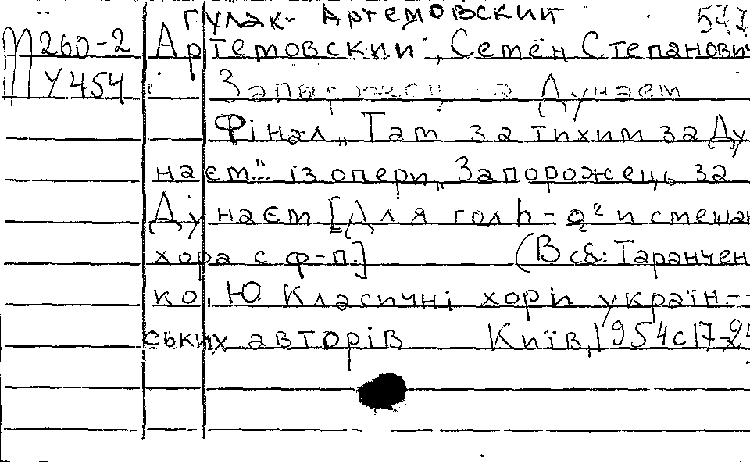 Гулак- Артемовский 577
М260-2 Артемовский, Семён Степанович
У454 Запорожец за Дунаем
Фінал „Там за тихим за Ду
наєм" із опери „Запорожець за
Дунаєм [Для гол h-g² и смешан
хора с ф-п.] (В сб: Таранчен
ко, Ю Класичні хори україн-
ських авторів Київ, 1954 с17-24